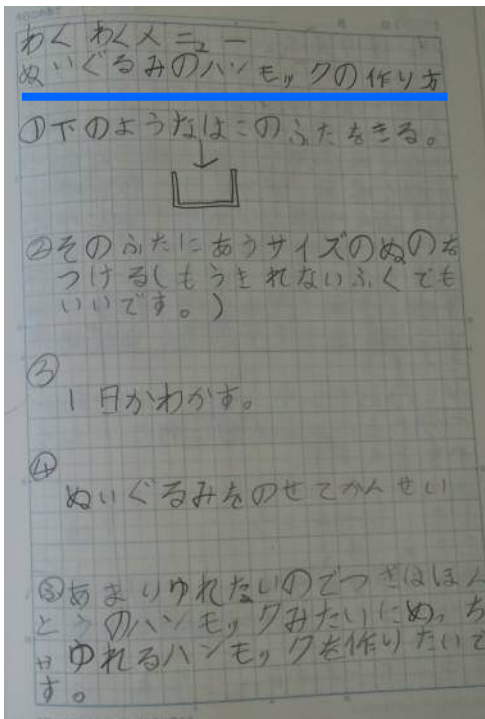 わくわくメニュー
ぬいぐるみのハンモックの作り方
①下のようなはこのふたをきる。
②そのふたにあうサイズのぬのを
つける(もうきれないふくでも
いいです。)
③
1日かわかす。
④
ぬいぐるみをのせてかんせい
⑤あまりゆれないのでつぎはほん
とうのハンモックみたいにめっち
ゃゆれるハンモックを作りたいで
す。